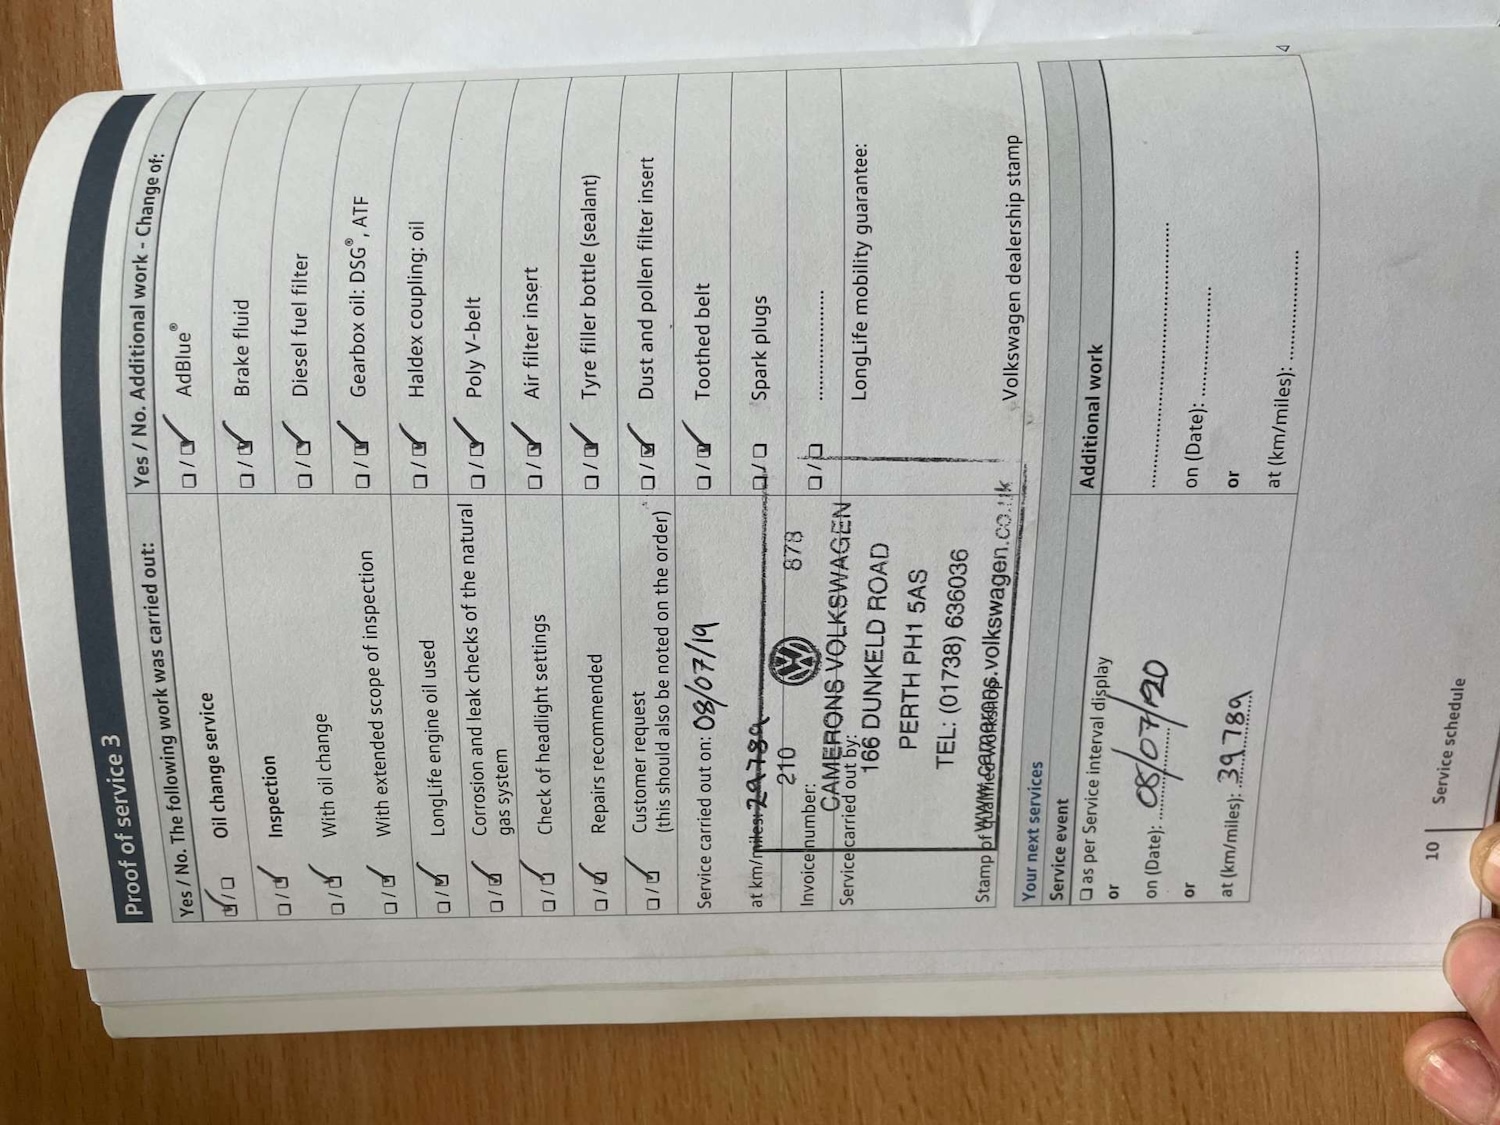 Proof of service 3
Yes / No. The following work was carried out:
☑ / ☐ Oil change service
☐ / ☑ Inspection
☐ / ☑ With oil change
☐ / ☑ With extended scope of inspection
☐ / ☑ LongLife engine oil used
☐ / ☑ Corrosion and leak checks of the natural
gas system
☐ / ☑ Check of headlight settings
☐ / ☑ Repairs recommended
☐ / ☑ Customer request
(this should also be noted on the order)
Service carried out on: 08/07/19
at km/miles: 29789
Invoice number:
Service carried out by:
210 878
CAMERONS VOLKSWAGEN
166 DUNKELD ROAD
PERTH PH1 5AS
TEL: (01738) 636036
www.camerons.volkswagen.co.uk
Stamp of qualified workshop
Yes / No. Additional work - Change of:
☐ / ☑ AdBlue®
☐ / ☑ Brake fluid
☐ / ☑ Diesel fuel filter
☐ / ☑ Gearbox oil: DSG®, ATF
☐ / ☑ Haldex coupling: oil
☐ / ☑ Poly V-belt
☐ / ☑ Air filter insert
☐ / ☑ Tyre filler bottle (sealant)
☐ / ☑ Dust and pollen filter insert
☐ / ☑ Toothed belt
☐ / ☐ Spark plugs
☐ / ☐ ....................
LongLife mobility guarantee:
Volkswagen dealership stamp
Your next services
Service event
☐ as per Service interval display
or
on (Date): 08/07/20
or
at (km/miles): 39789
Additional work
........................................
on (Date): ....................
or
at (km/miles): ....................
10 Service schedule